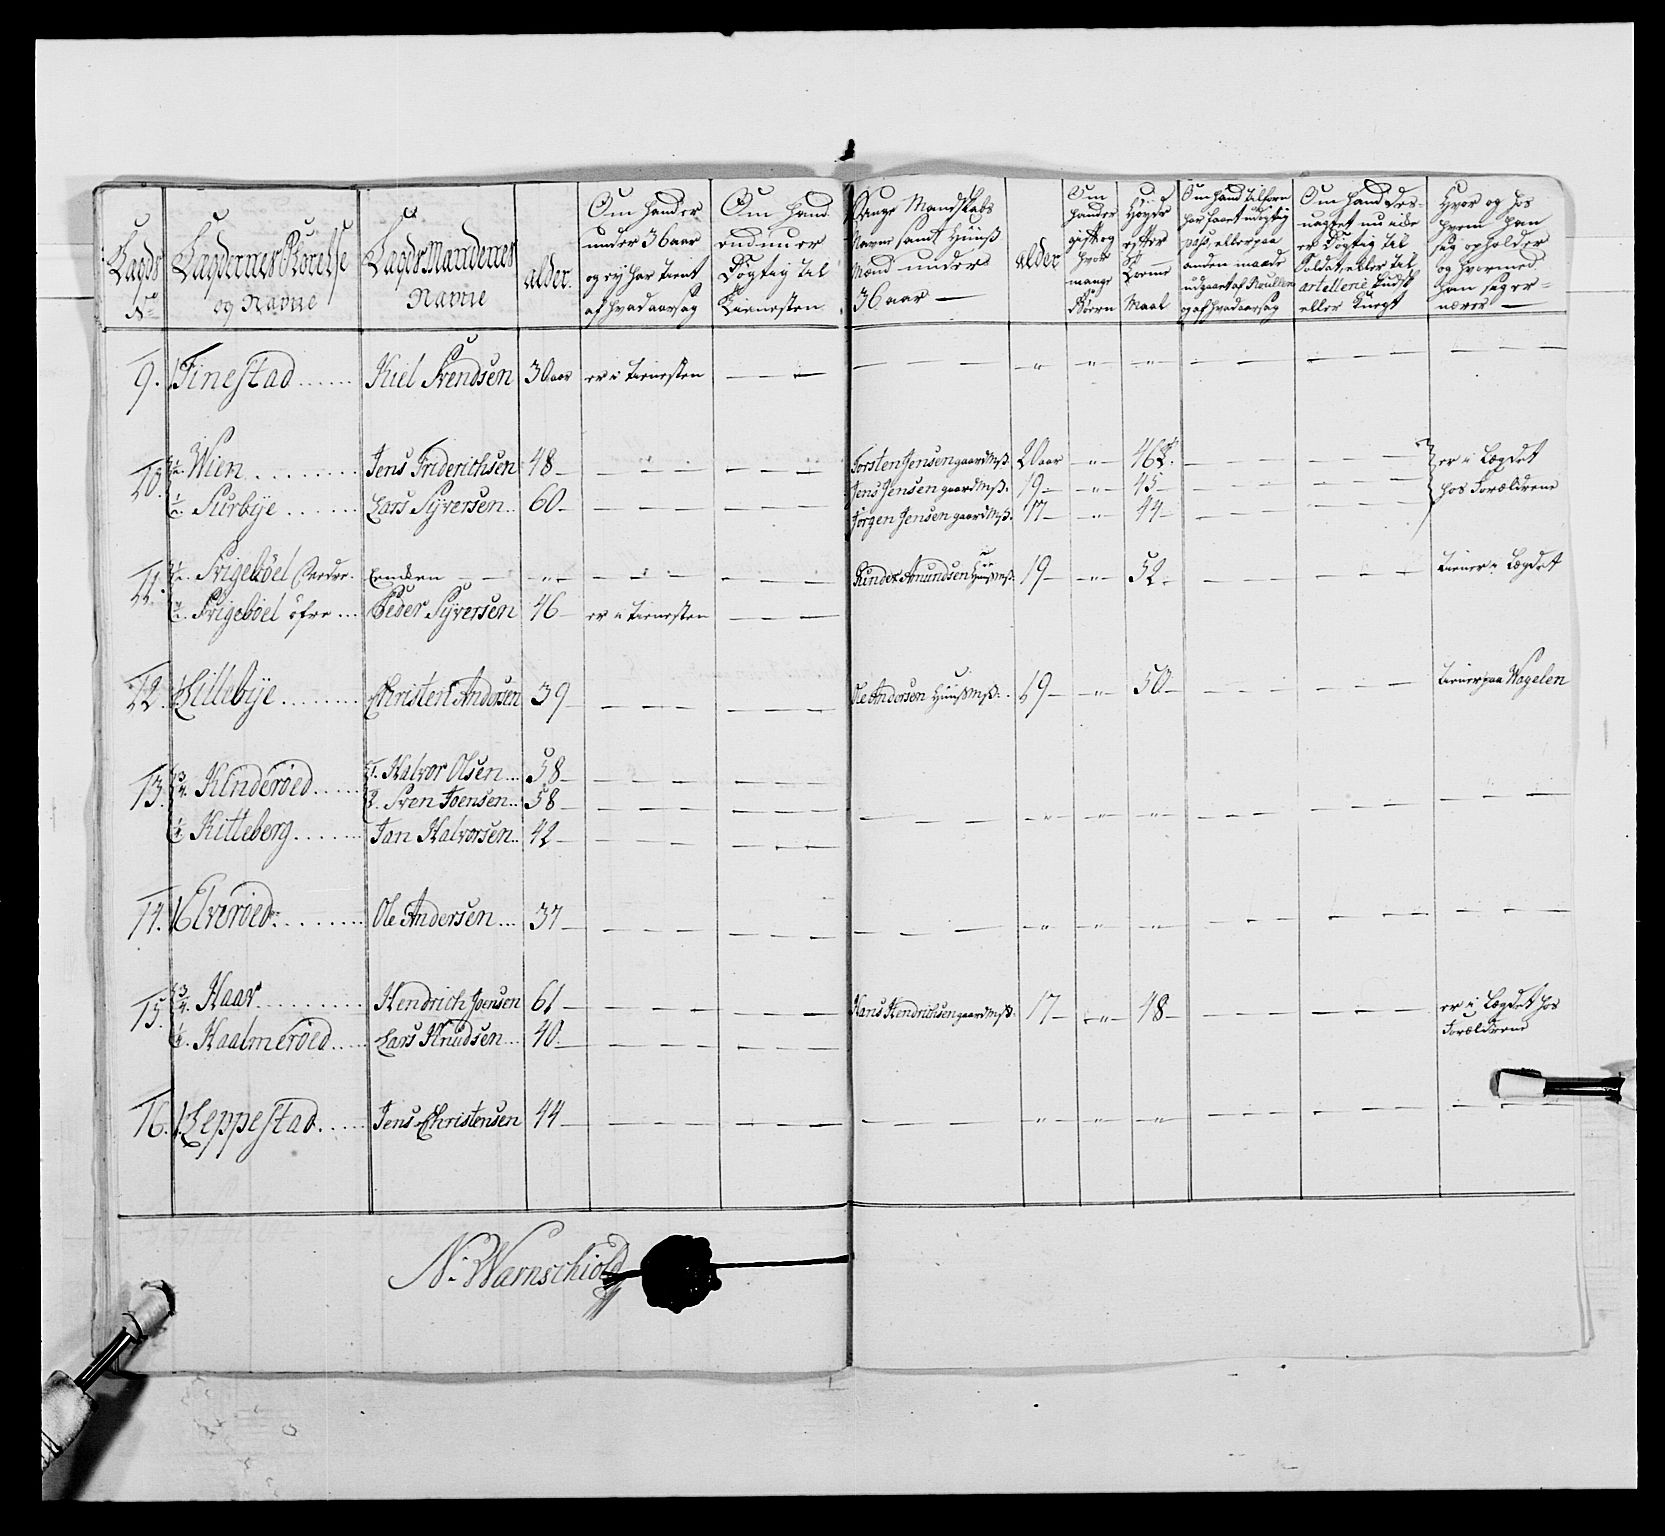 Lagds No
Lagdernes Störelse og Navne
Lagds Mandenes Navne
alder.
Om hand er under 36 aar og ey har tient af hvad aarsag
Om hand endnu er Dögtig til Tienesten
Unge Mandskabs Navne samt Huus Mænd under 36 aar —
alder
Om hand er gift og hvor mange Börn
Höyde efter Maal
Om hand tilforn har faaet udygtig pass, eller paa anden maade udgaaet af Roullen og af hvad aarsag
Om hand Des- uagtet nu ikke er Dögtig til Soldat, eller til artellerie Kudsk eller Knegt
Hvor og hos hvem han sig opholder og hvormed han sig er- nærer —
9. 1 Finestad ...... Kiel Svendsen 30 aar er i tienesten — — — „ „ „ — —
10. ½ Wien ....... Jens Friderichsen 48 — — — Torsten Jensen gaardMß. 20 aar — „ — 46½. — — er i Lægdet
Jens Jensen gaardMß. 19 — „ — 45 — — — hos Forældrene
½ Surbye ...... Lars Syversen .. 60 — — — Jörgen Jensen gaardMß. 17 — „ — 44 — — —
11. ½ Svigeböel Nedre. Encken — — „ — — — Gunder Amundsen HuußMß. 19 — „ — 52 — — — tiener i Lægdet
½ Svigeböel öfre ... Peder Syversen 46 — er i tienesten — —
12. 1 Lillebye ........ Christen Andersen 39 — — — Ole Andersen HuußMß. .. 19 — „ — 50 — — — tiener paa Wagelen
13. ¾ Kinderöed ..... 1. Halvor Olsen ... 58 — — —
2. Sven Joensen .. 58 — — — — „ „ „ — — —
¼ Kitteberg ...... Jan Halvorsen .. 42 — — —
14. 1 Elveröed ....... Ole Andersen .... 37 — — — — „ „ „ — — —
15. ¾ Haav .......... Hendrich Joensen 61 — — — Hans Hendrichsen gaardMß. 17 — „ — 48 — — — er i Lægdet hos Forældrene
¼ Haalmeröed ..... Lars Knudsen ... 40. — — —
16. 1. Leppestad ..... Jens Christensen 44 — — — — „ „ „ — — —
N. Warnschiold